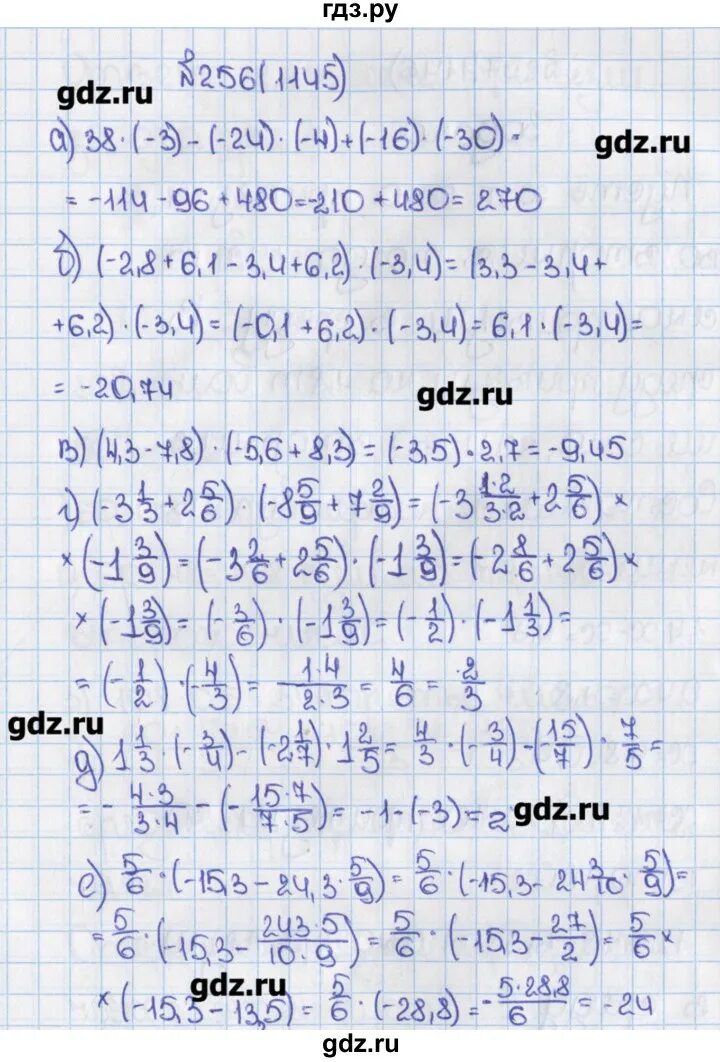 гдз.ру
№256(1145)
gdz.ru
gdz.ru
а) 38·(-3)-(-24)·(-4)+(-16)·(-30)=
= -114-96+480=-210+480=270
б) (-2,8+6,1-3,4+6,2)·(-3,4)=(3,3-3,4+
+6,2)·(-3,4)=(-0,1+6,2)·(-3,4)=6,1·(-3,4)=
= -20,74
gdz.ru
в) (4,3-7,8)·(-5,6+8,3)=(-3,5)·2,7=-9,45
г) (-3 1/3+2 5/6)·(-8 5/9+7 2/9)=(-3 1·2/3·2+2 5/6)×
×(-1 3/9)=(-3 2/6+2 5/6)·(-1 3/9)=(-2 8/6+2 5/6)×
×(-1 3/9)=(-3/6)·(-1 3/9)=(-1/2)·(-1 1/3)=
=(-1/2)·(-4/3)=1·4/2·3=4/6=2/3
gdz.ru
д) 1 1/3·(-3/4)-(-2 1/7)·1 2/5=4/3·(-3/4)-(-15/7)·7/5=
=-4·3/3·4-(-15·7/7·5)=-1-(-3)=2
gdz.ru
е) 5/6·(-15,3-24,3·5/9)=5/6·(-15,3-24 3/10·5/9)=
=5/6·(-15,3-243·5/10·9)=5/6·(-15,3-27/2)=5/6×
gdz.ru
×(-15,3-13,5)=5/6·(-28,8)=-5·28,8/6=-24
gdz.ru